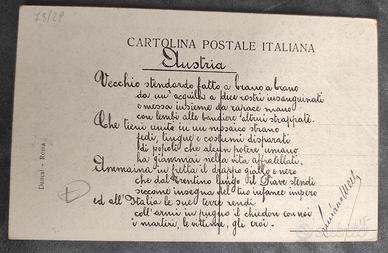 78/28
CARTOLINA POSTALE ITALIANA
Austria
Vecchio stendardo fatto a brano a brano
da un'aquila a due rostri insanguinati
e messa insieme da rapace mano
con lembi alle bandiere altrui strappate.
Che tieni unite in un mosaico strano
fedi, lingue e costumi disparati
di popoli che alcun potere umano
ha giammai nella vita affratellati,
Ammaina in fretta il drappo giallo e nero
che dal Trentino lungo il Piave stendi
siccome insegna del tuo infame impero
ed all'Italia le sue terre rendi
coll'armi in pugno il chiedon con noi
i martiri, le vittime, gli eroi.-
Danesi - Roma
D